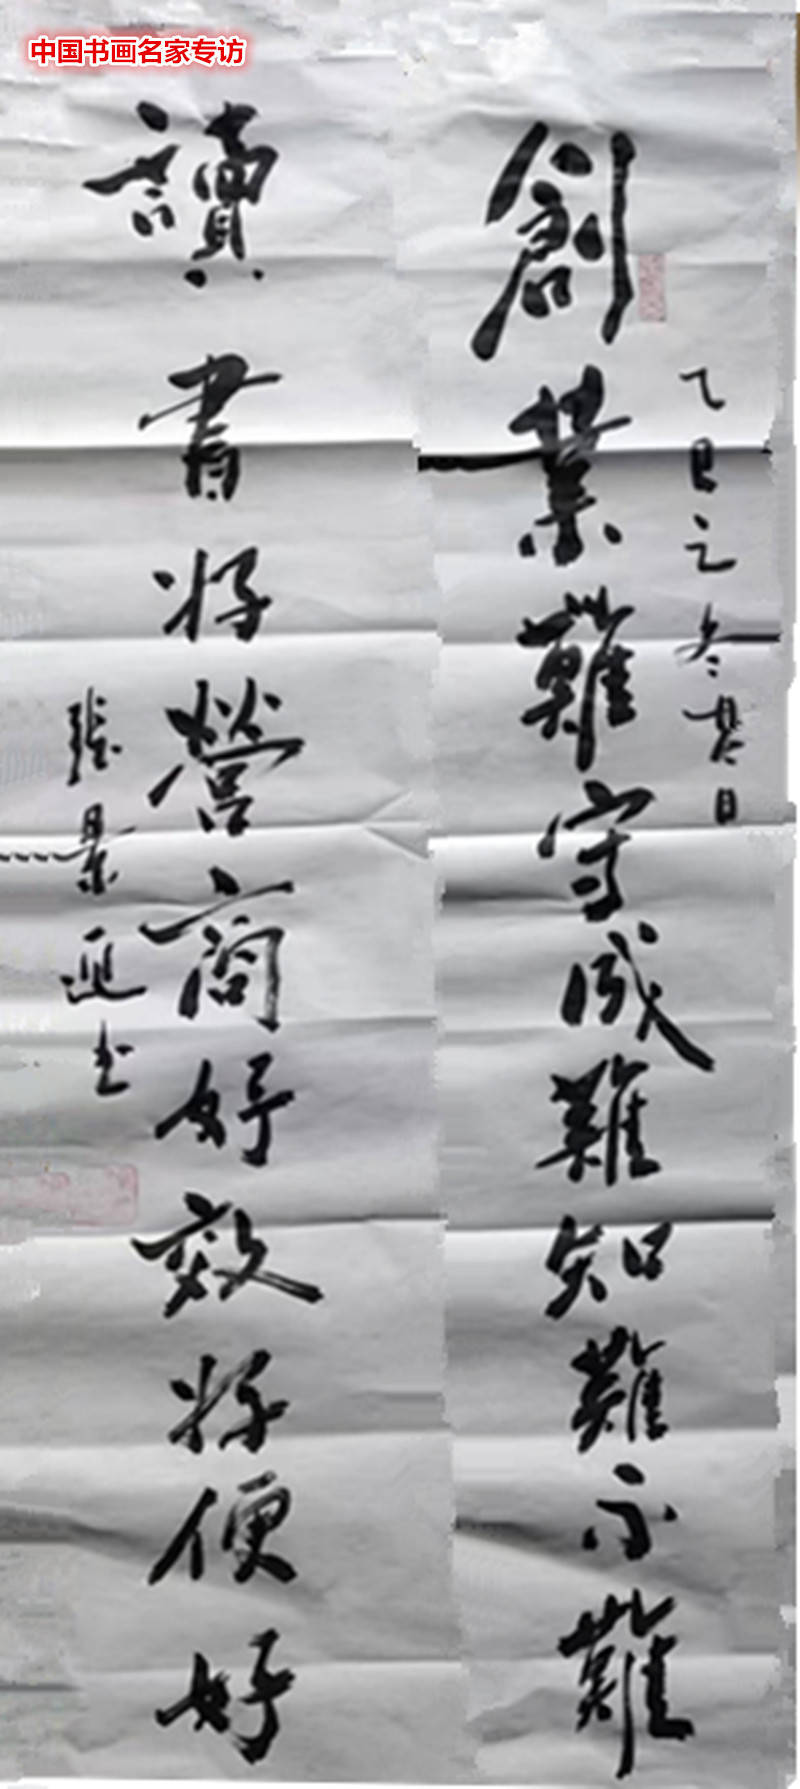 中国书画名家专访
乙巳之冬某日
創業難守成難知難不難
讀書好營商好效好便好
張景书